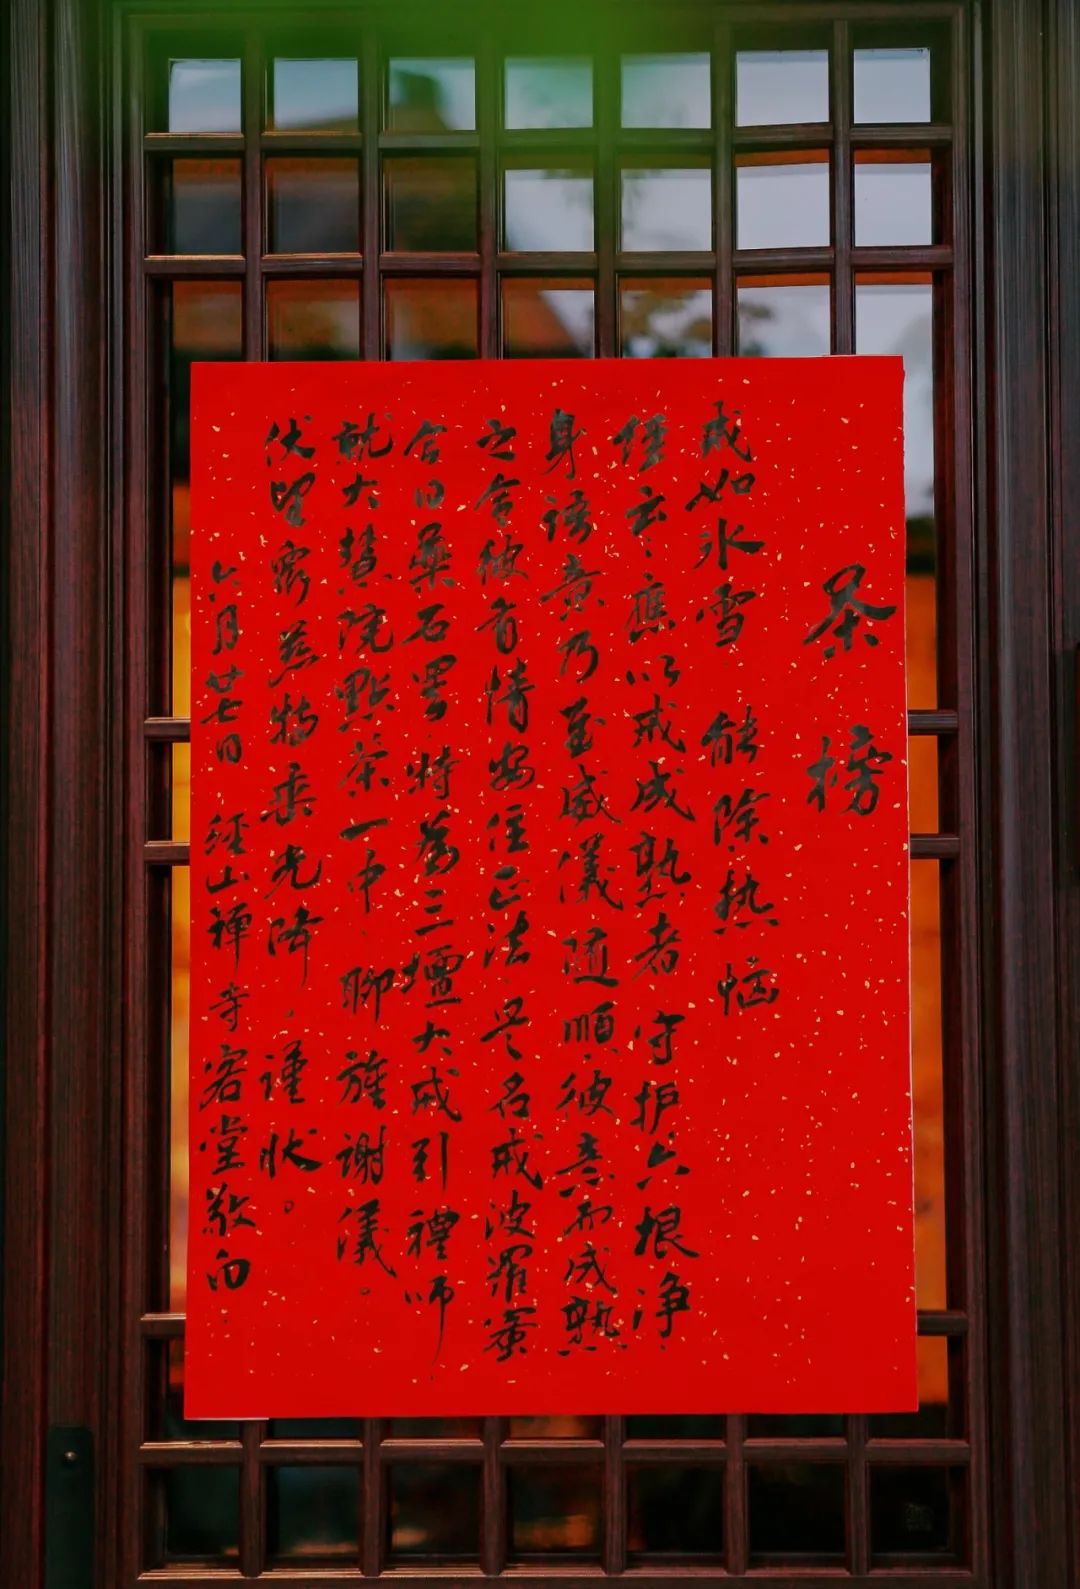 茶榜
戒如冰雪 能除热恼
经云：应以戒成熟者 守护六根净
身语意乃至威仪 随顺彼意而成熟
之 令彼有情安住正法 是名戒波罗蜜
今日药石罢 特为三壇大戒引禮师
就大慧院點茶一中 聊旌谢儀。
伏望 众慈 特垂光降，谨状。
六月廿七日 经山禅寺客堂敬白